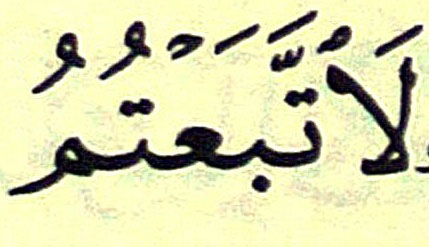 لَٱتَّبَعْتُمُ